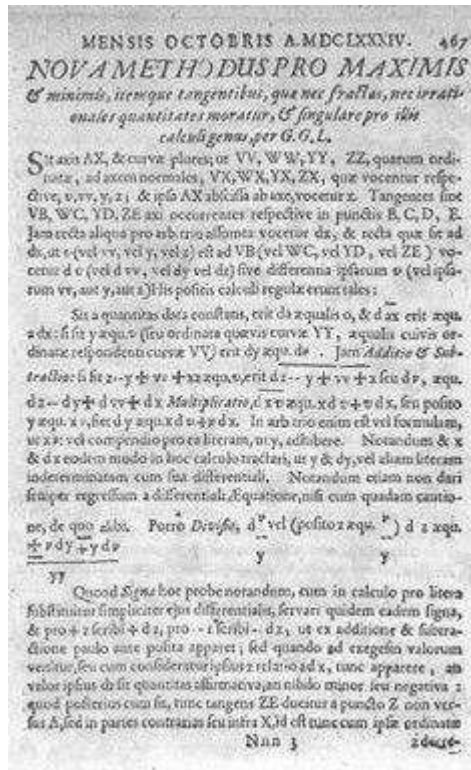 MENSIS OCTOBRIS A. MDCLXXXIV. 467
NOVA METHODUS PRO MAXIMIS
& minimis, itemque tangentibus, quæ nec fractas, nec irrati-
onales quantitates moratur, & singulare pro illis
calculi genus, per G.G.L.
Sit axis AX, & curvæ plures, ut VV, WW, YY, ZZ, quarum ordi-
natæ, ad axem normales, VX, WX, YX, ZX, quæ vocentur respe-
ctive, v, vv, y, z; & ipsa AX abscissa ab axe, vocetur x. Tangentes sint
VB, WC, YD, ZE axi occurrentes respective in punctis B, C, D, E.
Jam recta aliqua pro arbitrio assumta vocetur dx, & recta quæ sit ad
dx, ut v (vel vv, vel y, vel z) est ad VB (vel WC, vel YD, vel ZE) vo-
cetur dv (vel dvv, vel dy vel dz) sive differentia ipsarum v (vel ipsa-
rum vv, aut y, aut z) His positis calculi regulæ erunt tales:
Sit a quantitas data constans, erit da æqualis 0, & d ax erit æqu.
a dx: si sit y æqu. v (seu ordinata quævis curvæ YY, æqualis cuivis or-
dinatæ respondenti curvæ VV) erit dy æqu. dv. Jam Additio & Sub-
tractio: si sit z -- y + vv + x æqu. v, erit d z -- y + vv + x seu dv, æqu.
dz -- dy + dvv + dx Multiplicatio, d xv æqu. x dv + v dx, seu posito
y æqu. xv, fiet dy æqu. x dv + v dx. In arbitrio enim est vel formulam,
ut xv, vel compendio pro ea literam, ut y, adhibere. Notandum & x
& dx eodem modo in hoc calculo tractari, ut y & dy, vel aliam literam
indeterminatam cum sua differentiali. Notandum etiam non dari
semper regressum a differentiali Æquatione, nisi cum quadam cautio-
ne, de quo alibi. Porro Divisio, d v/y vel (posito z æqu. v/y) dz æqu.
+ v dy + y dv
yy
Quoad Signa hoc probe notandum, cum in calculo pro litera
substituitur simpliciter ejus differentialis, servari quidem eadem signa,
& pro + z scribi + dz, pro -- z scribi -- dz, ut ex additione & subtra-
ctione paulo ante posita apparet; sed quando ad exegesin valorum
venitur, seu cum consideratur ipsius z relatio ad x, tunc apparere, an
valor ipsius dz sit quantitas affirmativa, an nihilo minor seu negativa:
quod posterius cum fit, tunc tangens ZE ducitur a puncto Z non ver-
sus A, sed in partes contrarias seu infra X, id est tunc cum ipsæ ordinatæ
Nnn 3 z decre-